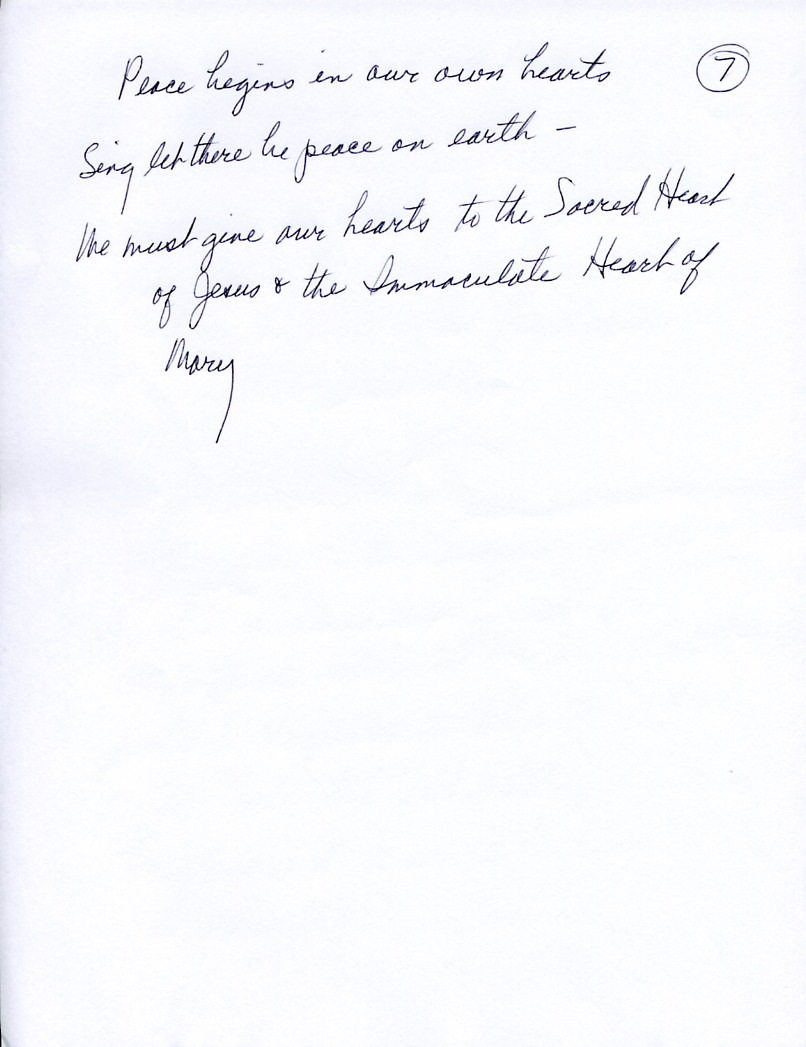 Peace begins in our own hearts 7
Sing let there be peace on earth -
We must give our hearts to the Sacred Heart
of Jesus & the Immaculate Heart of
Mary